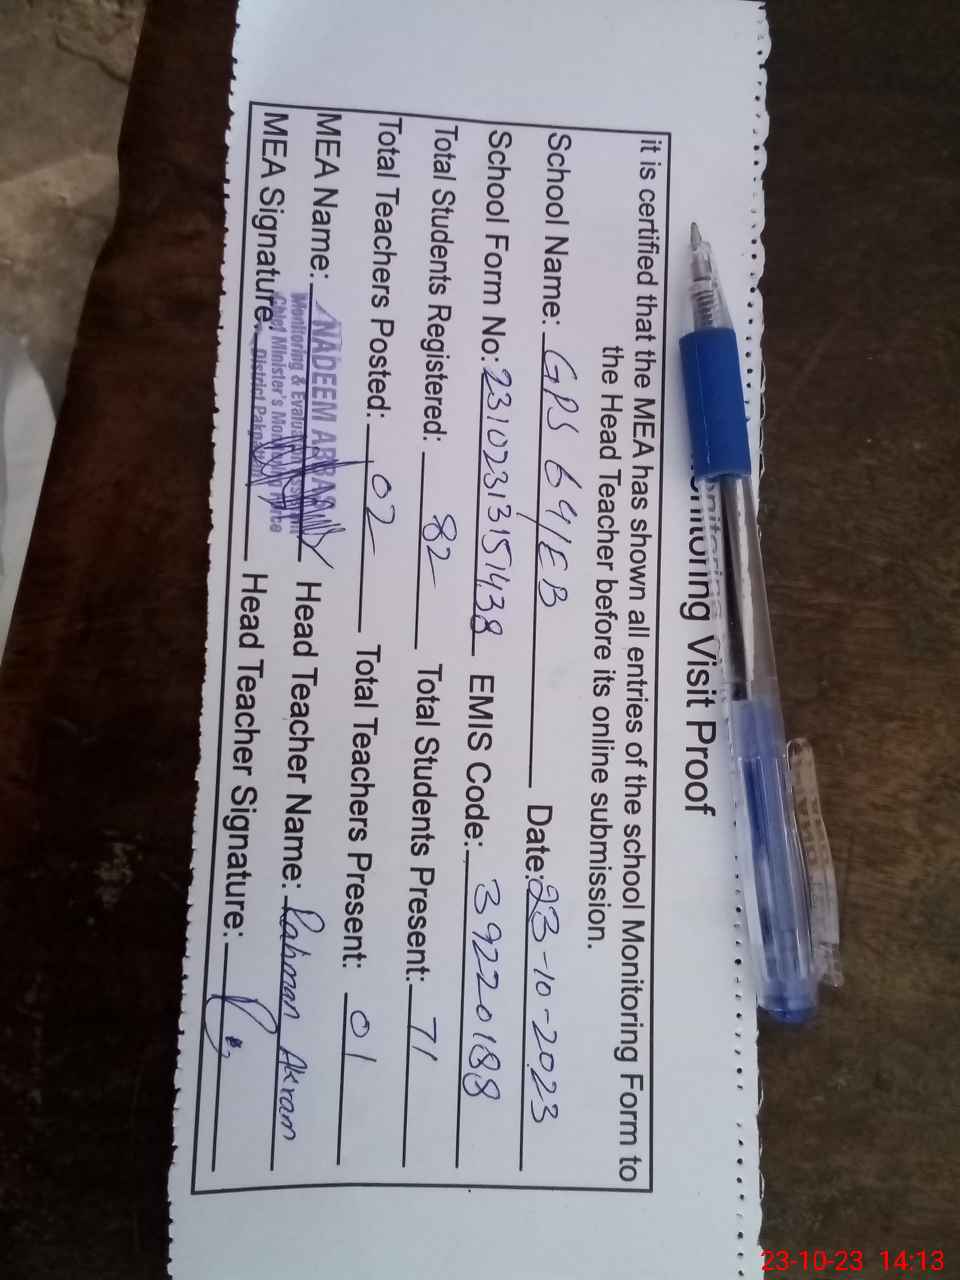 Monitoring Visit Proof
it is certified that the MEA has shown all entries of the school Monitoring Form to
the Head Teacher before its online submission.
School Name: GPS 64/EB Date: 23-10-2023
School Form No: 23102313151438 EMIS Code: 39220188
Total Students Registered: 82 Total Students Present: 71
Total Teachers Posted: 02 Total Teachers Present: 01
MEA Name: NADEEM ABBAS Head Teacher Name: Rahman Akram
Monitoring &
Chief Minister's
District
MEA Signature: Head Teacher Signature:
23-10-23 14:13